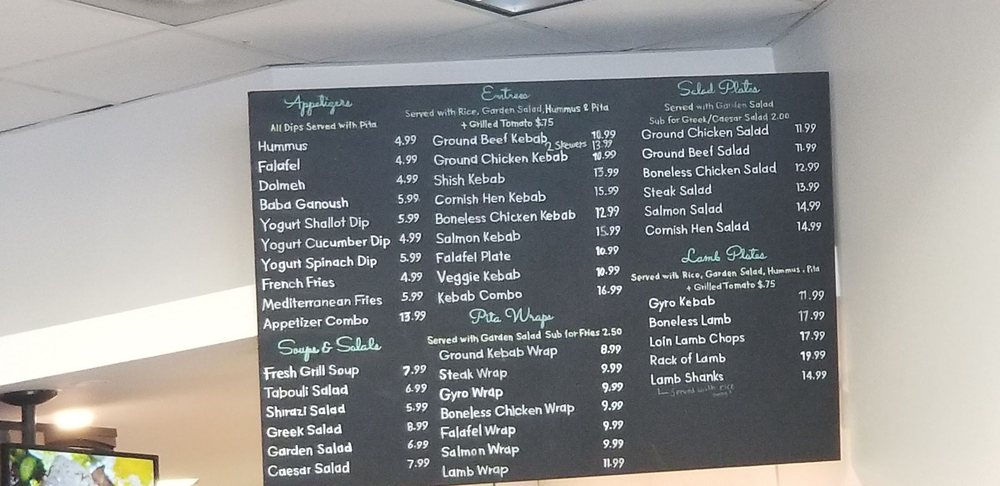 Appetizers
All Dips Served with Pita
Hummus 4.99
Falafel 4.99
Dolmeh 4.99
Baba Ganoush 5.99
Yogurt Shallot Dip 5.99
Yogurt Cucumber Dip 4.99
Yogurt Spinach Dip 5.99
French Fries 4.99
Mediterranean Fries 5.99
Appetizer Combo 13.99
Soups & Salads
Fresh Grill Soup 7.99
Tabouli Salad 6.99
Shirazi Salad 5.99
Greek Salad 8.99
Garden Salad 6.99
Caesar Salad 7.99
Entrees
Served with Rice, Garden Salad, Hummus & Pita
+ Grilled Tomato $.75
Ground Beef Kebab 10.99
2 Skewers 13.99
Ground Chicken Kebab 10.99
Shish Kebab 13.99
Cornish Hen Kebab 15.99
Boneless Chicken Kebab 12.99
Salmon Kebab 15.99
Falafel Plate 10.99
Veggie Kebab 10.99
Kebab Combo 16.99
Pita Wraps
Served with Garden Salad Sub for Fries 2.50
Ground Kebab Wrap 8.99
Steak Wrap 9.99
Gyro Wrap 9.99
Boneless Chicken Wrap 9.99
Falafel Wrap 9.99
Salmon Wrap 9.99
Lamb Wrap 11.99
Salad Plates
Served with Garden Salad
Sub for Greek/Caesar Salad 2.00
Ground Chicken Salad 11.99
Ground Beef Salad 11.99
Boneless Chicken Salad 12.99
Steak Salad 13.99
Salmon Salad 14.99
Cornish Hen Salad 14.99
Lamb Plates
Served with Rice, Garden Salad, Hummus, Pita
+ Grilled Tomato $.75
Gyro Kebab 11.99
Boneless Lamb 17.99
Loin Lamb Chops 17.99
Rack of Lamb 19.99
Lamb Shanks 14.99
Served with rice